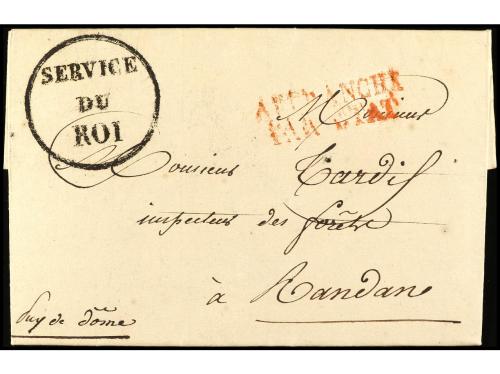 SERVICE
DU
ROI
AFFRANCHI
PAR ETAT
Monsieur
Monsieur Tardif
inspecteur des forêts
à Randan
Puy de dôme